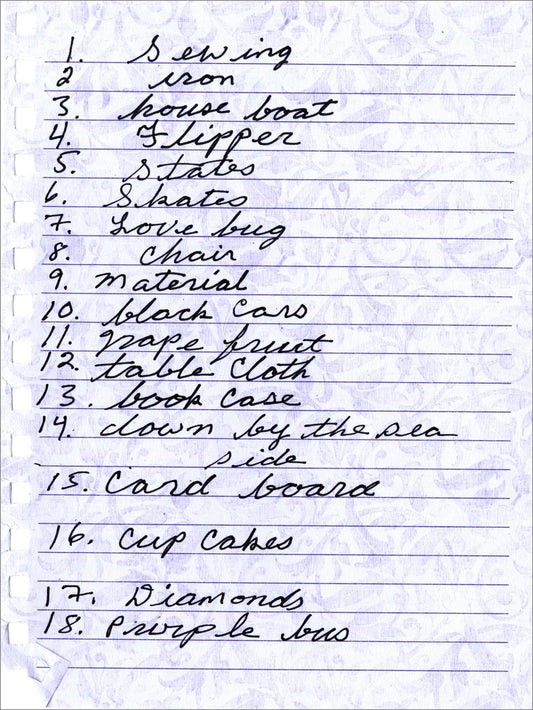 1. Sewing
2 iron
3. house boat
4. Flipper
5. States
6. Skates
7. Love bug
8. Chair
9. material
10. black cars
11. grape fruit
12. table cloth
13. book case
14. down by the sea
side
15. Card board
16. Cup Cakes
17. Diamonds
18. Prurple bus